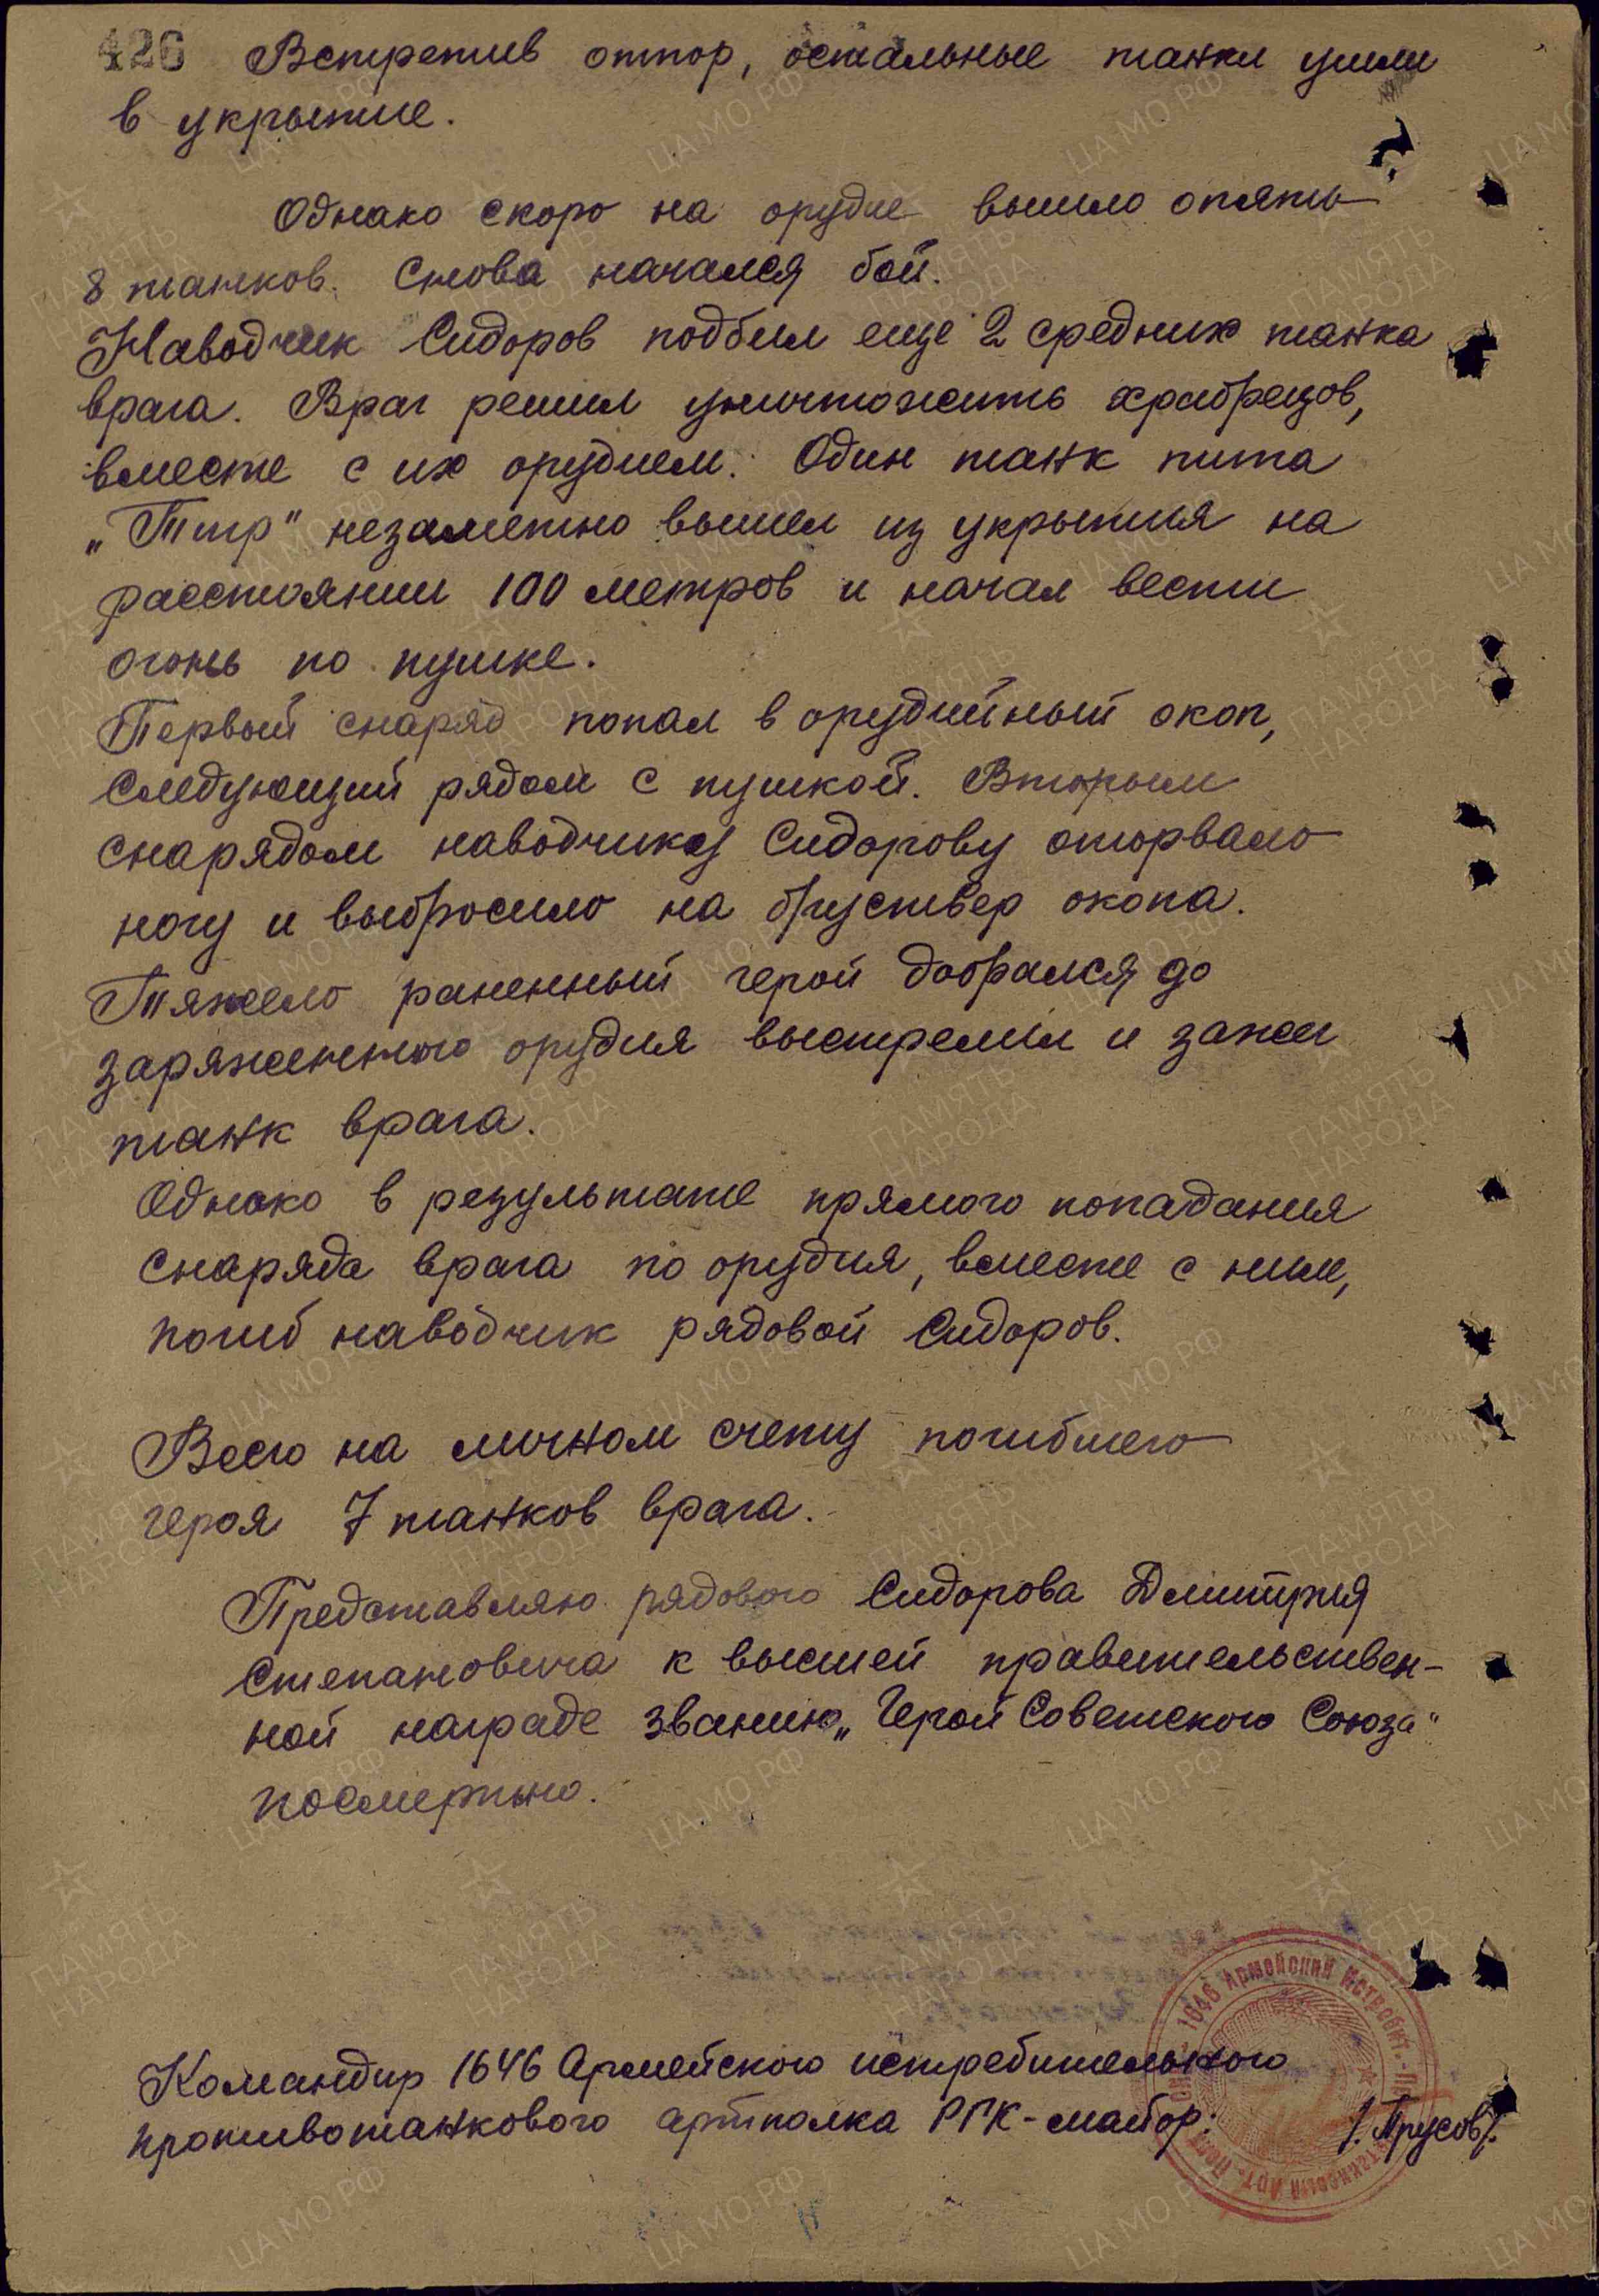 426 Встретив отпор, остальные танки ушли
в укрытие.
Однако скоро на орудие вышло опять
8 танков. Снова начался бой.
Наводчик Сидоров подбил еще 2 средних танка
врага. Враг решил уничтожить храбрецов,
вместе с их орудием. Один танк типа
„Тигр" незаметно вышел из укрытия на
расстоянии 100 метров и начал вести
огонь по пушке.
Первый снаряд попал в орудийный окоп,
следующий рядом с пушкой. Вторым
снарядом наводчику Сидорову оторвало
ногу и выбросило на бруствер окопа.
Тяжело раненный герой добрался до
заряженного орудия выстрелил и зажег
танк врага.
Однако в результате прямого попадания
снаряда врага по орудия, вместе с ним,
погиб наводчик рядовой Сидоров.
Всего на личном счету погибшего
героя 7 танков врага.
Представляю рядового Сидорова Дмитрия
Степановича к высшей правительствен-
ной награде званию „Герой Советского Союза"
посмертно.
Командир 1646 Армейского истребительного
противотанкового артполка РГК - майор: /. Прусов/.
1646 Армейский Истребит.
ПАМЯТЬ НАРОДА
ЦА МО РФ